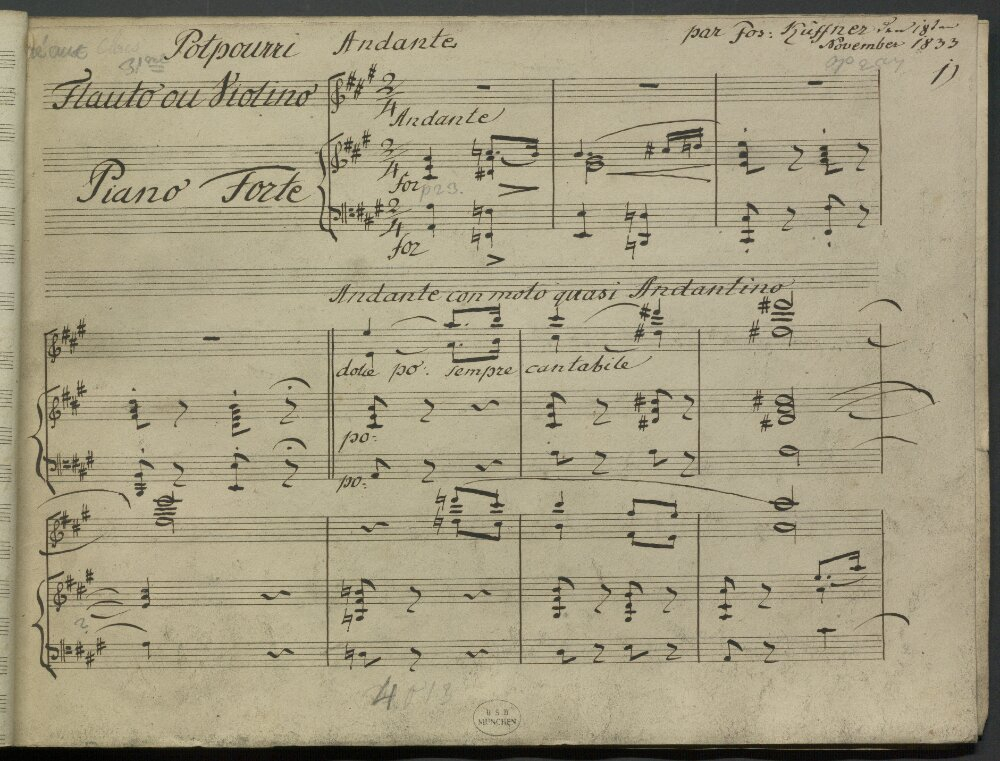 Potpourri Andante par Jos: Küffner
November 1833
31me
1)
Flauto ou Violino
Andante
Piano Forte
for
p 23.
for
Andante con moto quasi Andantino
dolce po: sempre cantabile
po:
po:
4013
BSB
MÜNCHEN